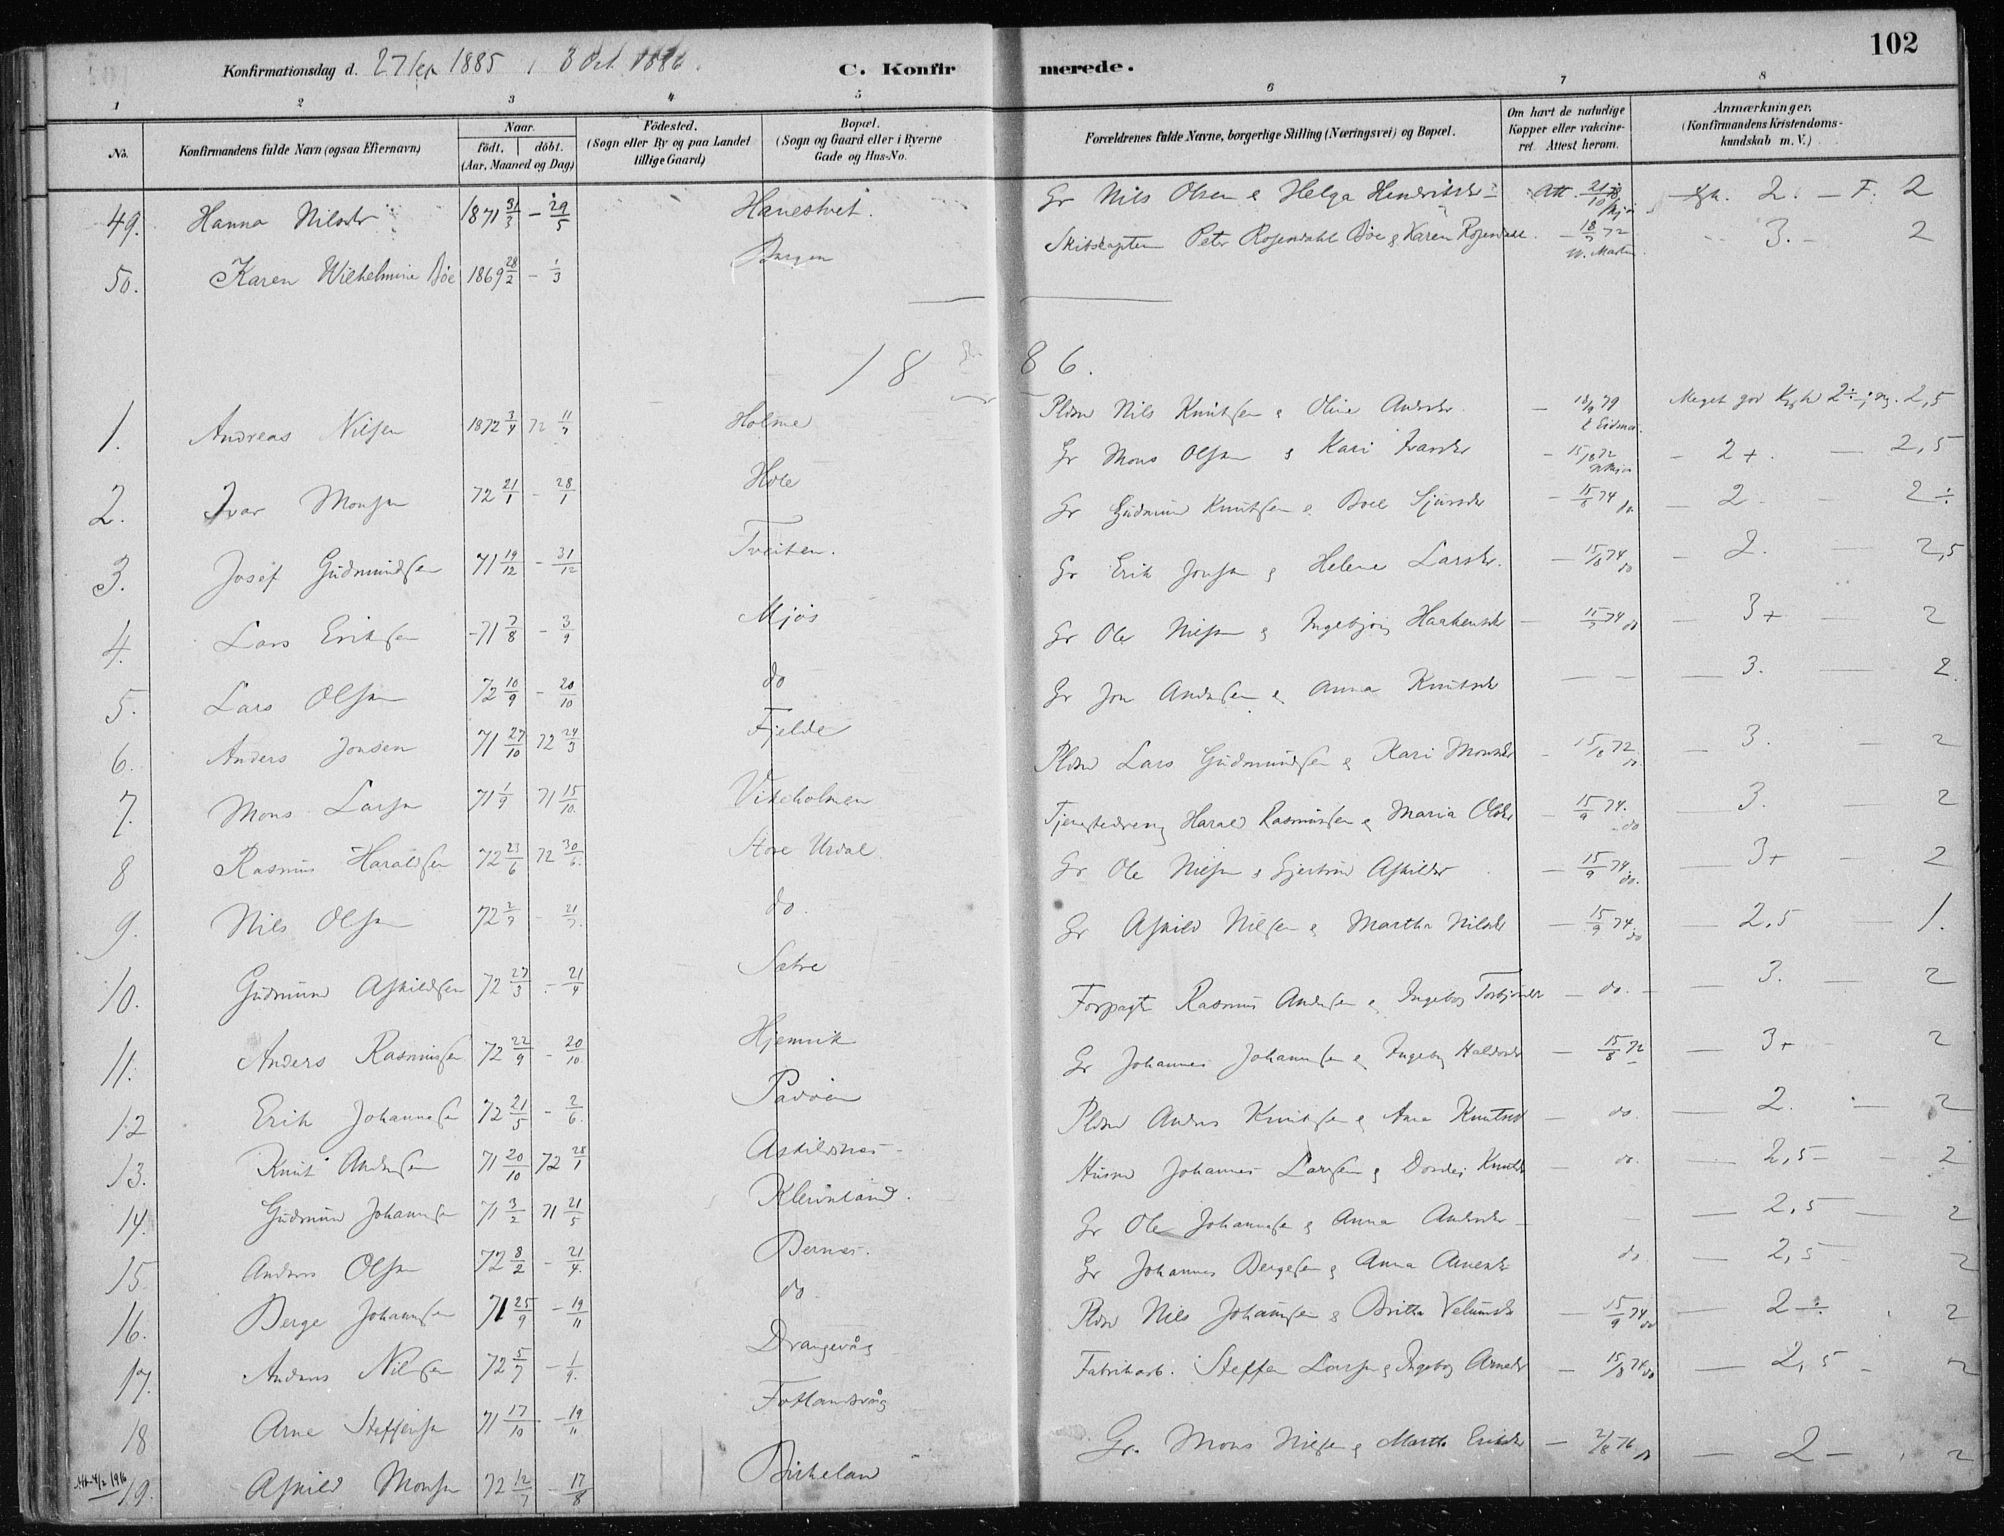 102
Konfirmationsdag d. 27 Sep 1885, 3 Oct. 1886. C. Konfirmerede.
1 2 3 4 5 6 7 8
No. Konfirmandens fulde Navn (ogsaa Efternavn) Naar født. døbt. (Aar, Maaned og Dag) Fødested. (Sogn eller By og paa Landet tillige Gaard) Bopæl. (Sogn og Gaard eller i Byerne Gade og Hus-No. Forældrenes fulde Navne, borgerlige Stilling (Næringsvei) og Bopæl. Om havt de naturlige Kopper eller vakcineret. Attest herom. Anmærkninger. (Konfirmandens Kristendomskundskab m. V.)
49. Hanna Nilsdr 1871 31/3 – 29/5 Hanestvet. Gr Nils Olsen & Helga Hendriksdr – Att. 21/10 Kgk. 2. – F. 2
50. Karen Wilhelmine Bøe 1869 28/2 – 1/3 Bergen Skibskaptein Peter Rosendahl Bøe & Karen Rosendahl – 18/7 72 3. – 2
1886.
1. Andreas Nilsen 1872 3/4 72 11/7 Holme Pldsm Nils Knutsen & Oline Andersdr – 18/9 79 Meget god Kgk 2÷; 2,5
2. Ivar Monsen 72 21/1 – 28/1 Hole Gr Mons Olsen & Kari Ivarsdr – 15/8 72 – 2+. – 2,5
3. Josef Gudmundsen 71 19/12 – 31/12 Tveiten. Gr Gudmund Knutsen & Boel Sjursdr – 15/8 74 do – 2 – 2÷
4. Lars Eriksen – 71 7/8 – 3/9 Mjøs Gr Erik Jonsen & Helene Larsdr. – 15/8 74 do – 2. – 2,5
5. Lars Olsen 72 10/9 – 20/10 do Gr Ole Nilsen & Ingebjørg Haakensdr – 15/7 74 do – 3+ – 2
6. Anders Jonsen 71 27/10 72 24/3 Fjelde Gr Jon Andersen & Anna Knutsdr – – – 3. – 2
7. Mons Larsen 71 1/9 71 15/10. Vikeholmen Pldsm Lars Gudmundsen & Kari Monsdr – 15/8 72 do – 3. – 2
8 Rasmus Haraldsen 72 23/6 72 30/6. Store Urdal. Tjenestedreng Harald Rasmussen & Maria Olsdr – 15/9 74. do – 3. – 2
9. Nils Olsen 72 2/7 – 21/7. do. Gr Ole Nilsen & Gjertrud Askildsdr – 15/9 74. do. – 3+ – 2
10. Gudmund Askildsen 72 27/3 – 21/4 Sætre Gr Askild Nilsen & Martha Nilsdr – 15/9 74. do – 2,5 – 1.
11. Anders Rasmussen 72 22/9 – 20/10. Hjemvik Forpagt Rasmus Andersen & Ingebor Torbjørnsdr – do. – – 3. – 2
12 Erik Johannesen 72 21/5 – 2/6. Padøen Gr Johannes Johannesen & Ingebor Haldorsdr – 15/8 72 – 3+ – 2
13. Knut Andersen 71 20/10 72 28/1 Askildsnes – Pldsm Anders Knutsen & Ana Knutsdr – do. – 2. – 2
14. Gudmund Johannesen 71 3/2 71 21/5 Kleiveland. Husm Johannes Larssen & Dordei Knutsdr – do. – 2,5 – 2
15. Anders Olsen 72 8/2 – 21/4. Bernes. Gr Ole Johannesen & Anna Andersdr – – 2,5 – 2
16. Berge Johannesen 71 25/9 – 19/11 do. Gr Johannes Bergesen & Anna Arnesdr do – 2,5 2
17. Anders Nilsen 72 5/7 – 1/9. Drangevåg Pldsm Nils Johannesen & Britha Velumsdr – 15/9 74 do – 2 ÷. 2
18 Arne Steffensen 71 17/10 – 19/11 Fotlandsvåg Fabrikarb. Steffen Larsen & Ingebor Arnesdr – 15/8 74 do – 2,5 – 2
19. Askild Monsen 72 12/7 – 17/8 Birkeland Gr. Mons Nilsen & Martha Eriksdr – 2/8 76 do – 2 – 2